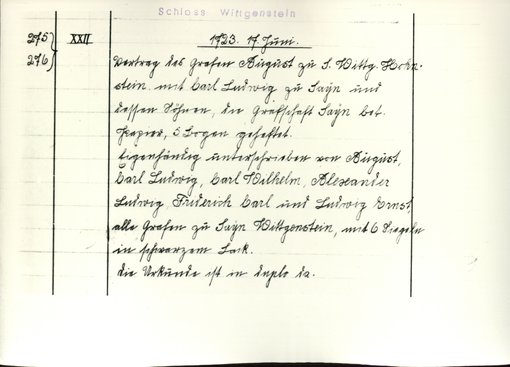 Schloss Wittgenstein
275) XXII 1723. 17. Juni.
276) Vertrag des Grafen August zu S. Wittg. Hohn-
stein mit Carl Ludwig zu Sayn und
dessen Söhnen, die Grafschaft Sayn bet.
Papier, 5 Bogen geheftet.
Eigenhändig unterschrieben von August,
Carl Ludwig, Carl Wilhelm, Alexander
Ludwig Friederich Carl und Ludwig Ernst,
alle Grafen zu Sayn Wittgenstein, mit 6 Siegeln
in schwarzem Lack.
Die Urkunde ist in duplo da.